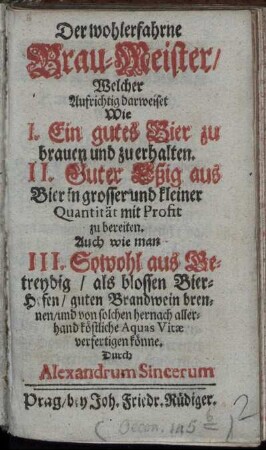 Der wohlerfahrne
Brau-Meister/
Welcher
Aufrichtig darweiset
Wie
I. Ein gutes Bier zu
brauen und zu erhalten.
II. Guter Eßig aus
Bier in grosser und kleiner
Quantität mit Profit
zu bereiten.
Auch wie man
III. Sowohl aus Ge-
treydig / als blossen Bier-
Hefen / guten Brandwein bren-
nen / und von solchen hernach aller-
hand köstliche Aquas Vitæ
verfertigen könne.
Durch
Alexandrum Sincerum
Prag / bey Joh. Friedr. Rüdiger.
(Oecon. 1145 2